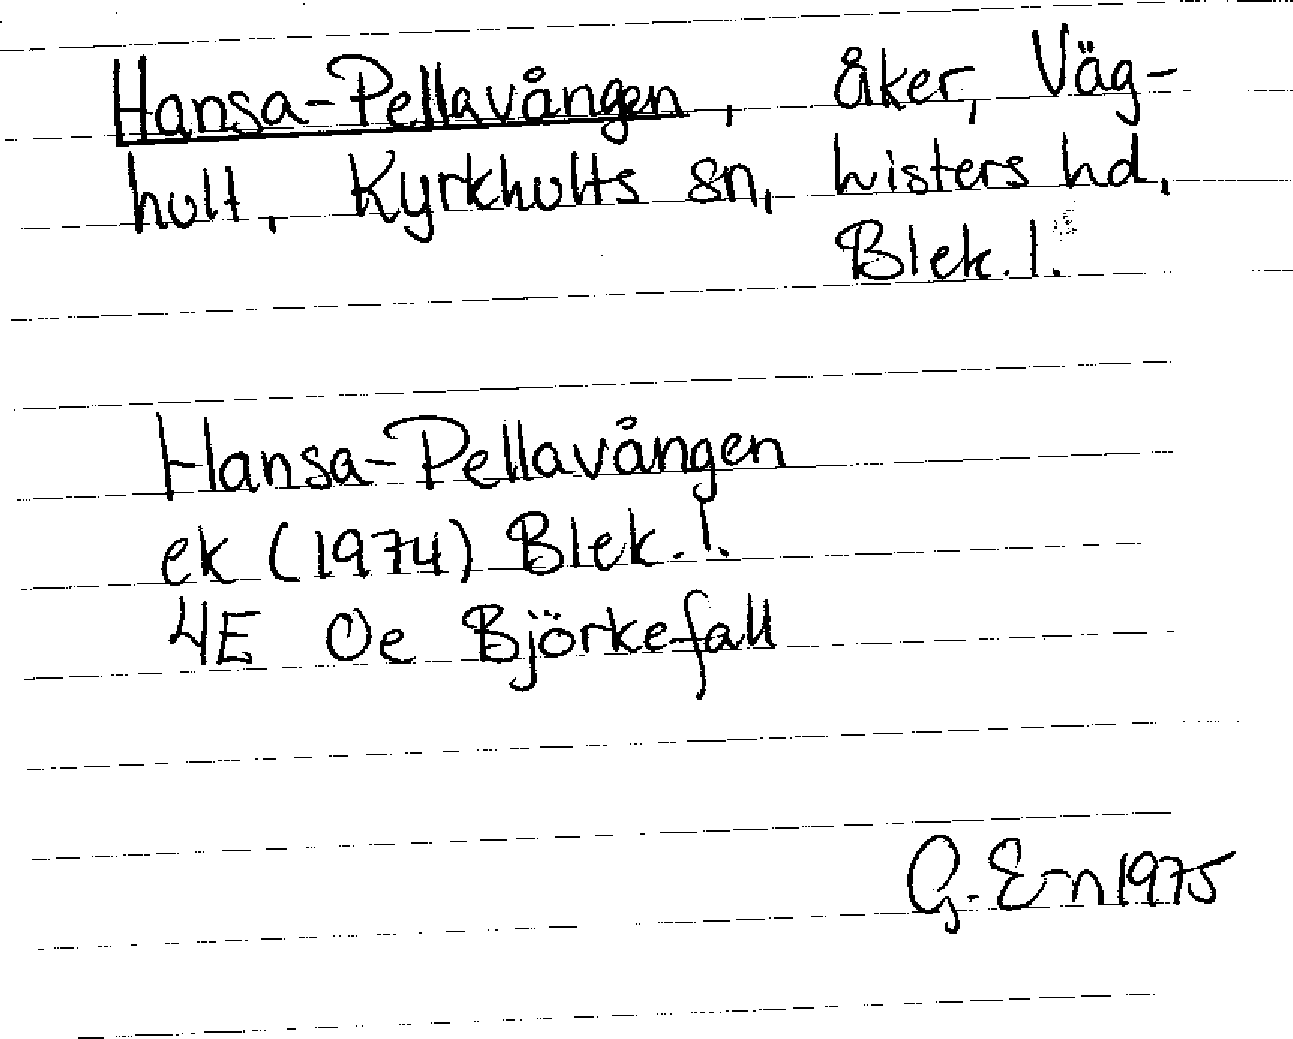 Hansa-Pellavången, åker, Väg-
hult, Kyrkhults sn, Listers hd,
Blek. l.
Hansa-Pellavången
ek (1974) Blek. l.
4E Oe Björkefall
G. Ern 1975